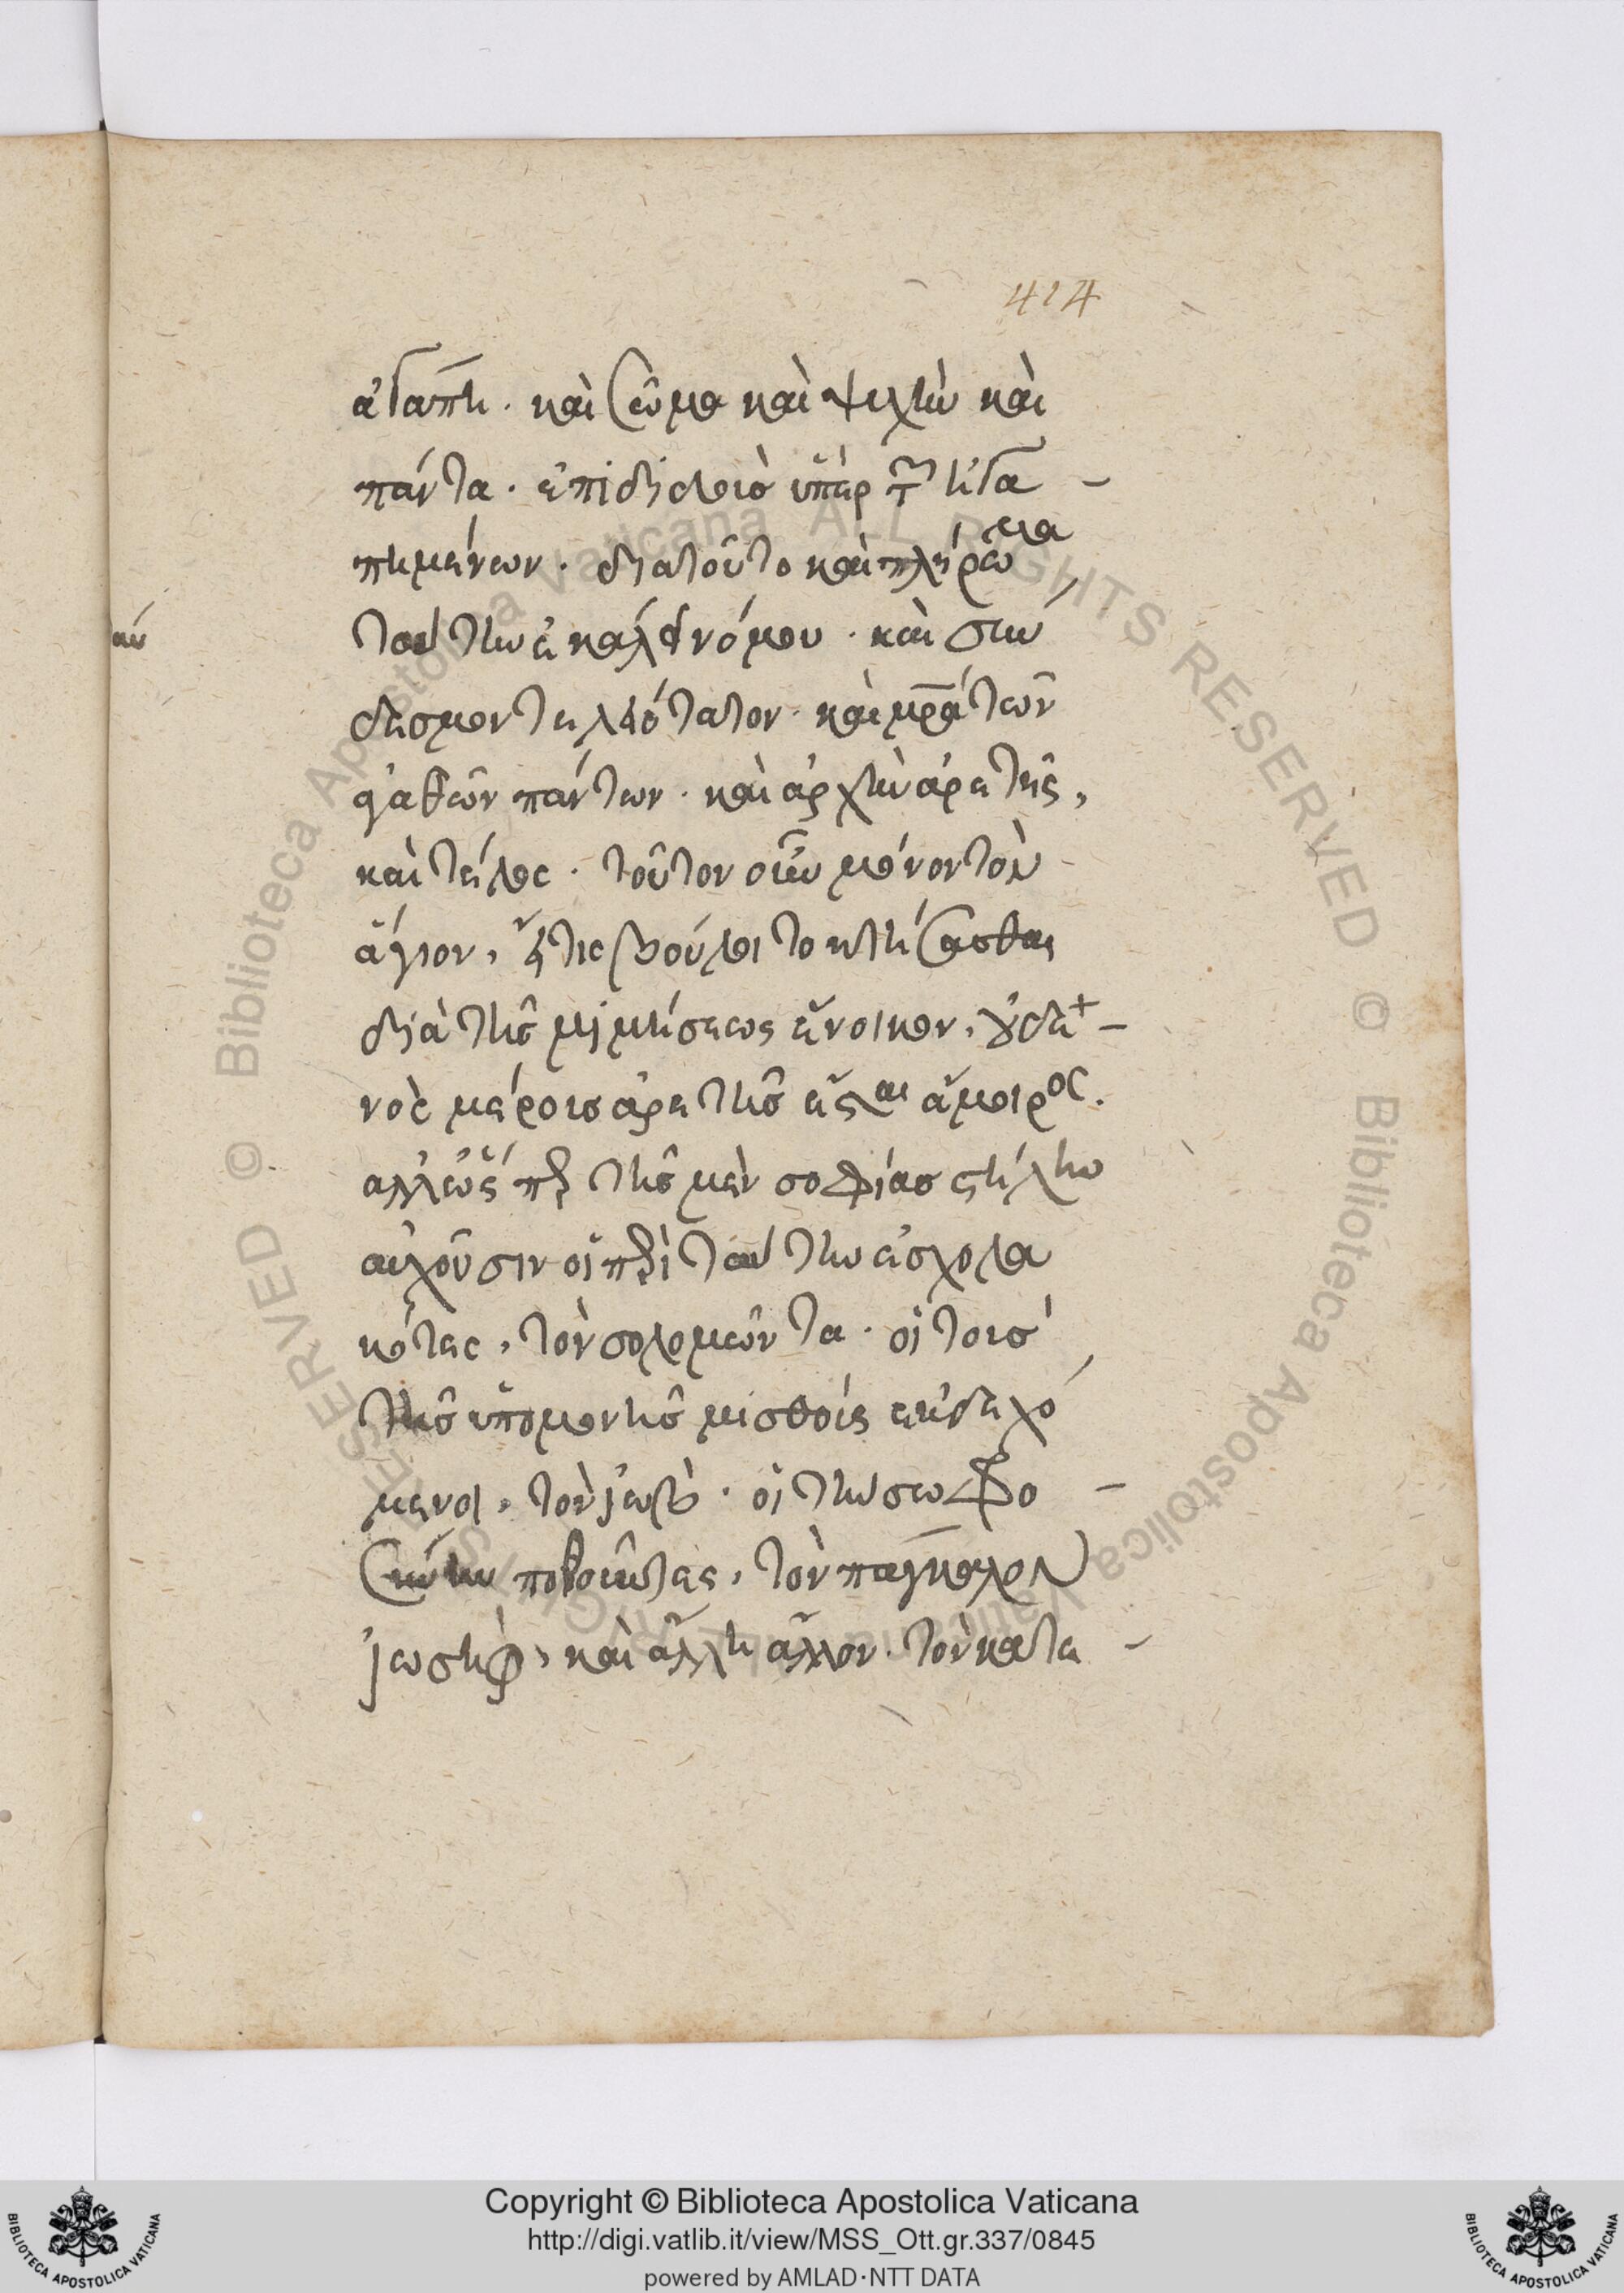 414
ἀγάπη. καὶ σῶμα καὶ ψυχὴν καὶ
πάντα. ἐπιδιδοῖσ ὑπὲρ τῶν ἠγα-
πημένων. διατοῦτο καὶ πλήρωμα
ταύτην ἐκάλει νόμου. καὶ σύν
δεσμον τελεότατον. καὶ μρα τῶν
ἀγαθῶν πάντων. καὶ ἀρχὴν ἀρετῆς,
καὶ τέλος. τοῦτον οὖν μόνον τὸν
ἅγιον, εἴ τις βούλοιτο κτήσασθαι
διὰ τῆσ μιμήσεως ἔνοικον, οὐδε-
νὸς μέροισ ἀρετῆσ ἔσται ἄμοιρος.
ἀλλ' ὥσπερ τῆσ μὲν σοφίασ στήλην
αὐχοῦσιν οἱ περὶ ταύτην ἐσχολα
κότες, τὸν σολομῶντα. οἱ τοισ
τῆσ ὑπομονῆσ μισθοῖς ἐκδεχό
μενοι, τὸν ἰώβ. οἱ τὴν σωφρο-
σύνην ποθοῦντες, τὸν πάγκαλον
ἰωσήφ, καὶ ἄλλη ἄλλον. τὸν κατε-
αύ
Copyright © Biblioteca Apostolica Vaticana
http://digi.vatlib.it/view/MSS_Ott.gr.337/0845
powered by AMLAD·NTT DATA
BIBLIOTECA APOSTOLICA VATICANA
BIBLIOTECA APOSTOLICA VATICANA
© Biblioteca Apostolica Vaticana ALL RIGHTS RESERVED
© Biblioteca Apostolica Vaticana ALL RIGHTS RESERVED